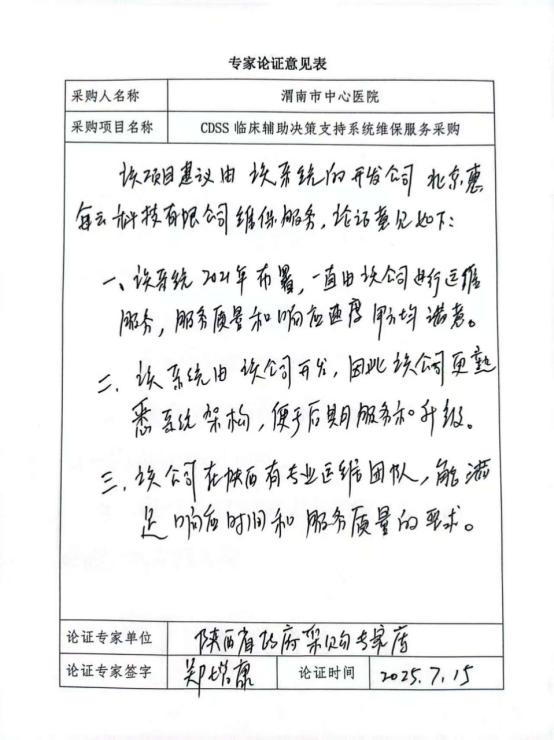 专家论证意见表
采购人名称 渭南市中心医院
采购项目名称 CDSS 临床辅助决策支持系统维保服务采购
该项目建议由该系统的开发公司北京惠
每云科技有限公司维保服务,论证意见如下:
一、该系统2021年布署,一直由该公司进行运维
服务,服务质量和响应速度甲方均满意。
二、该系统由该公司开发,因此该公司更熟
悉系统架构,便于后期服务和升级。
三、该公司在陕西有专业运维团队,能满
足响应时间和服务质量的要求。
论证专家单位 陕西省政府采购专家库
论证专家签字 郑 康 论证时间 2025.7.15